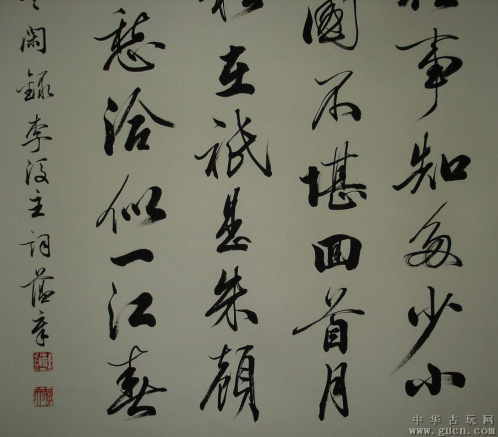 事知多少小
國不堪回首月
在祇是朱顏
愁洽似一江春
錄李後主詞
中华古玩网
www.gucn.com